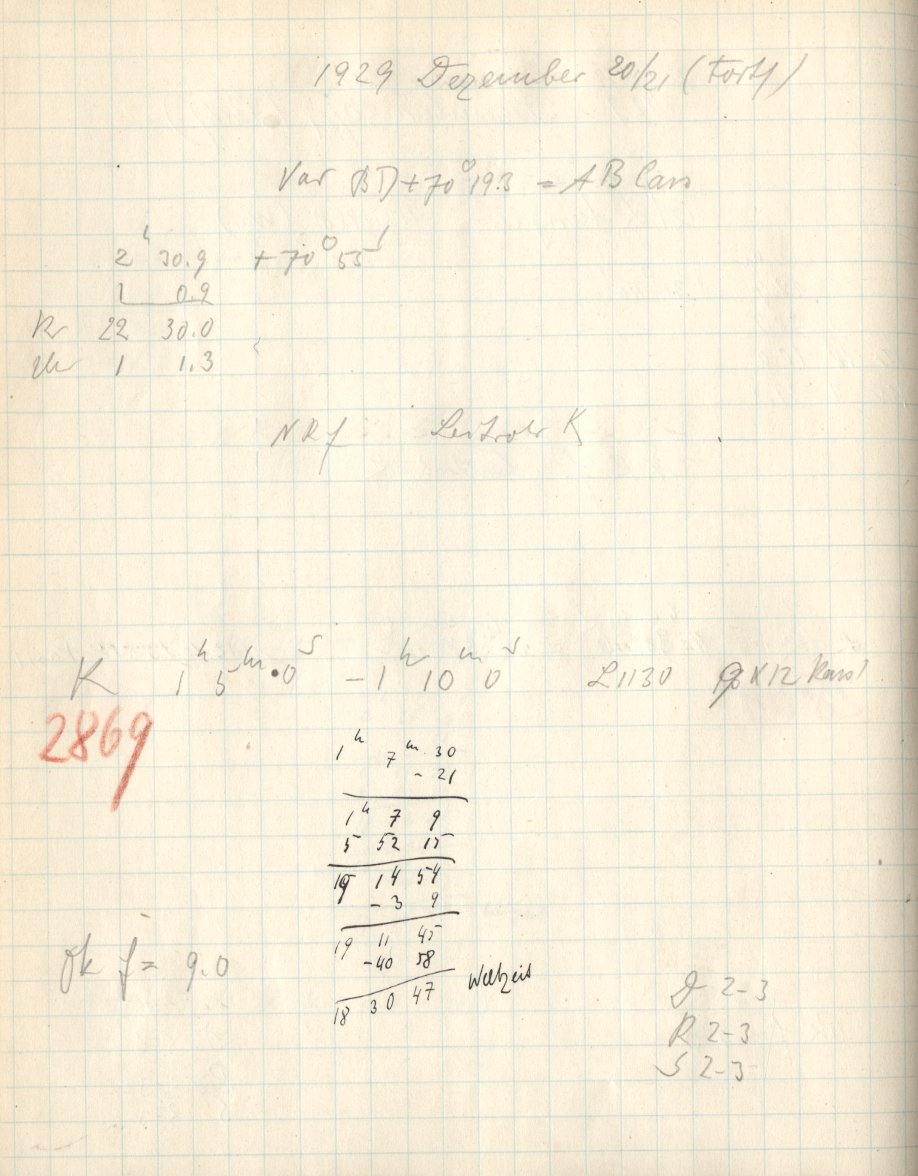 1929 Dezember 20/21 (Forts)
Var BD+70° 193 = AB Cass
2h 30.9 +70° 55'
1 0.9
Kr 22 30.0
Uhr 1 1.3
NRf Leitrohr K
K 1h 5m.0s -1h 10m 0s L1130 9X12
2869
1h 7m 30
- 21
1h 7 9
5 52 15
19 14 54
- 3 9
19 11 45
-40 58
18 30 47 Weltzeit
Ok f = 9.0
D 2-3
R 2-3
S 2-3